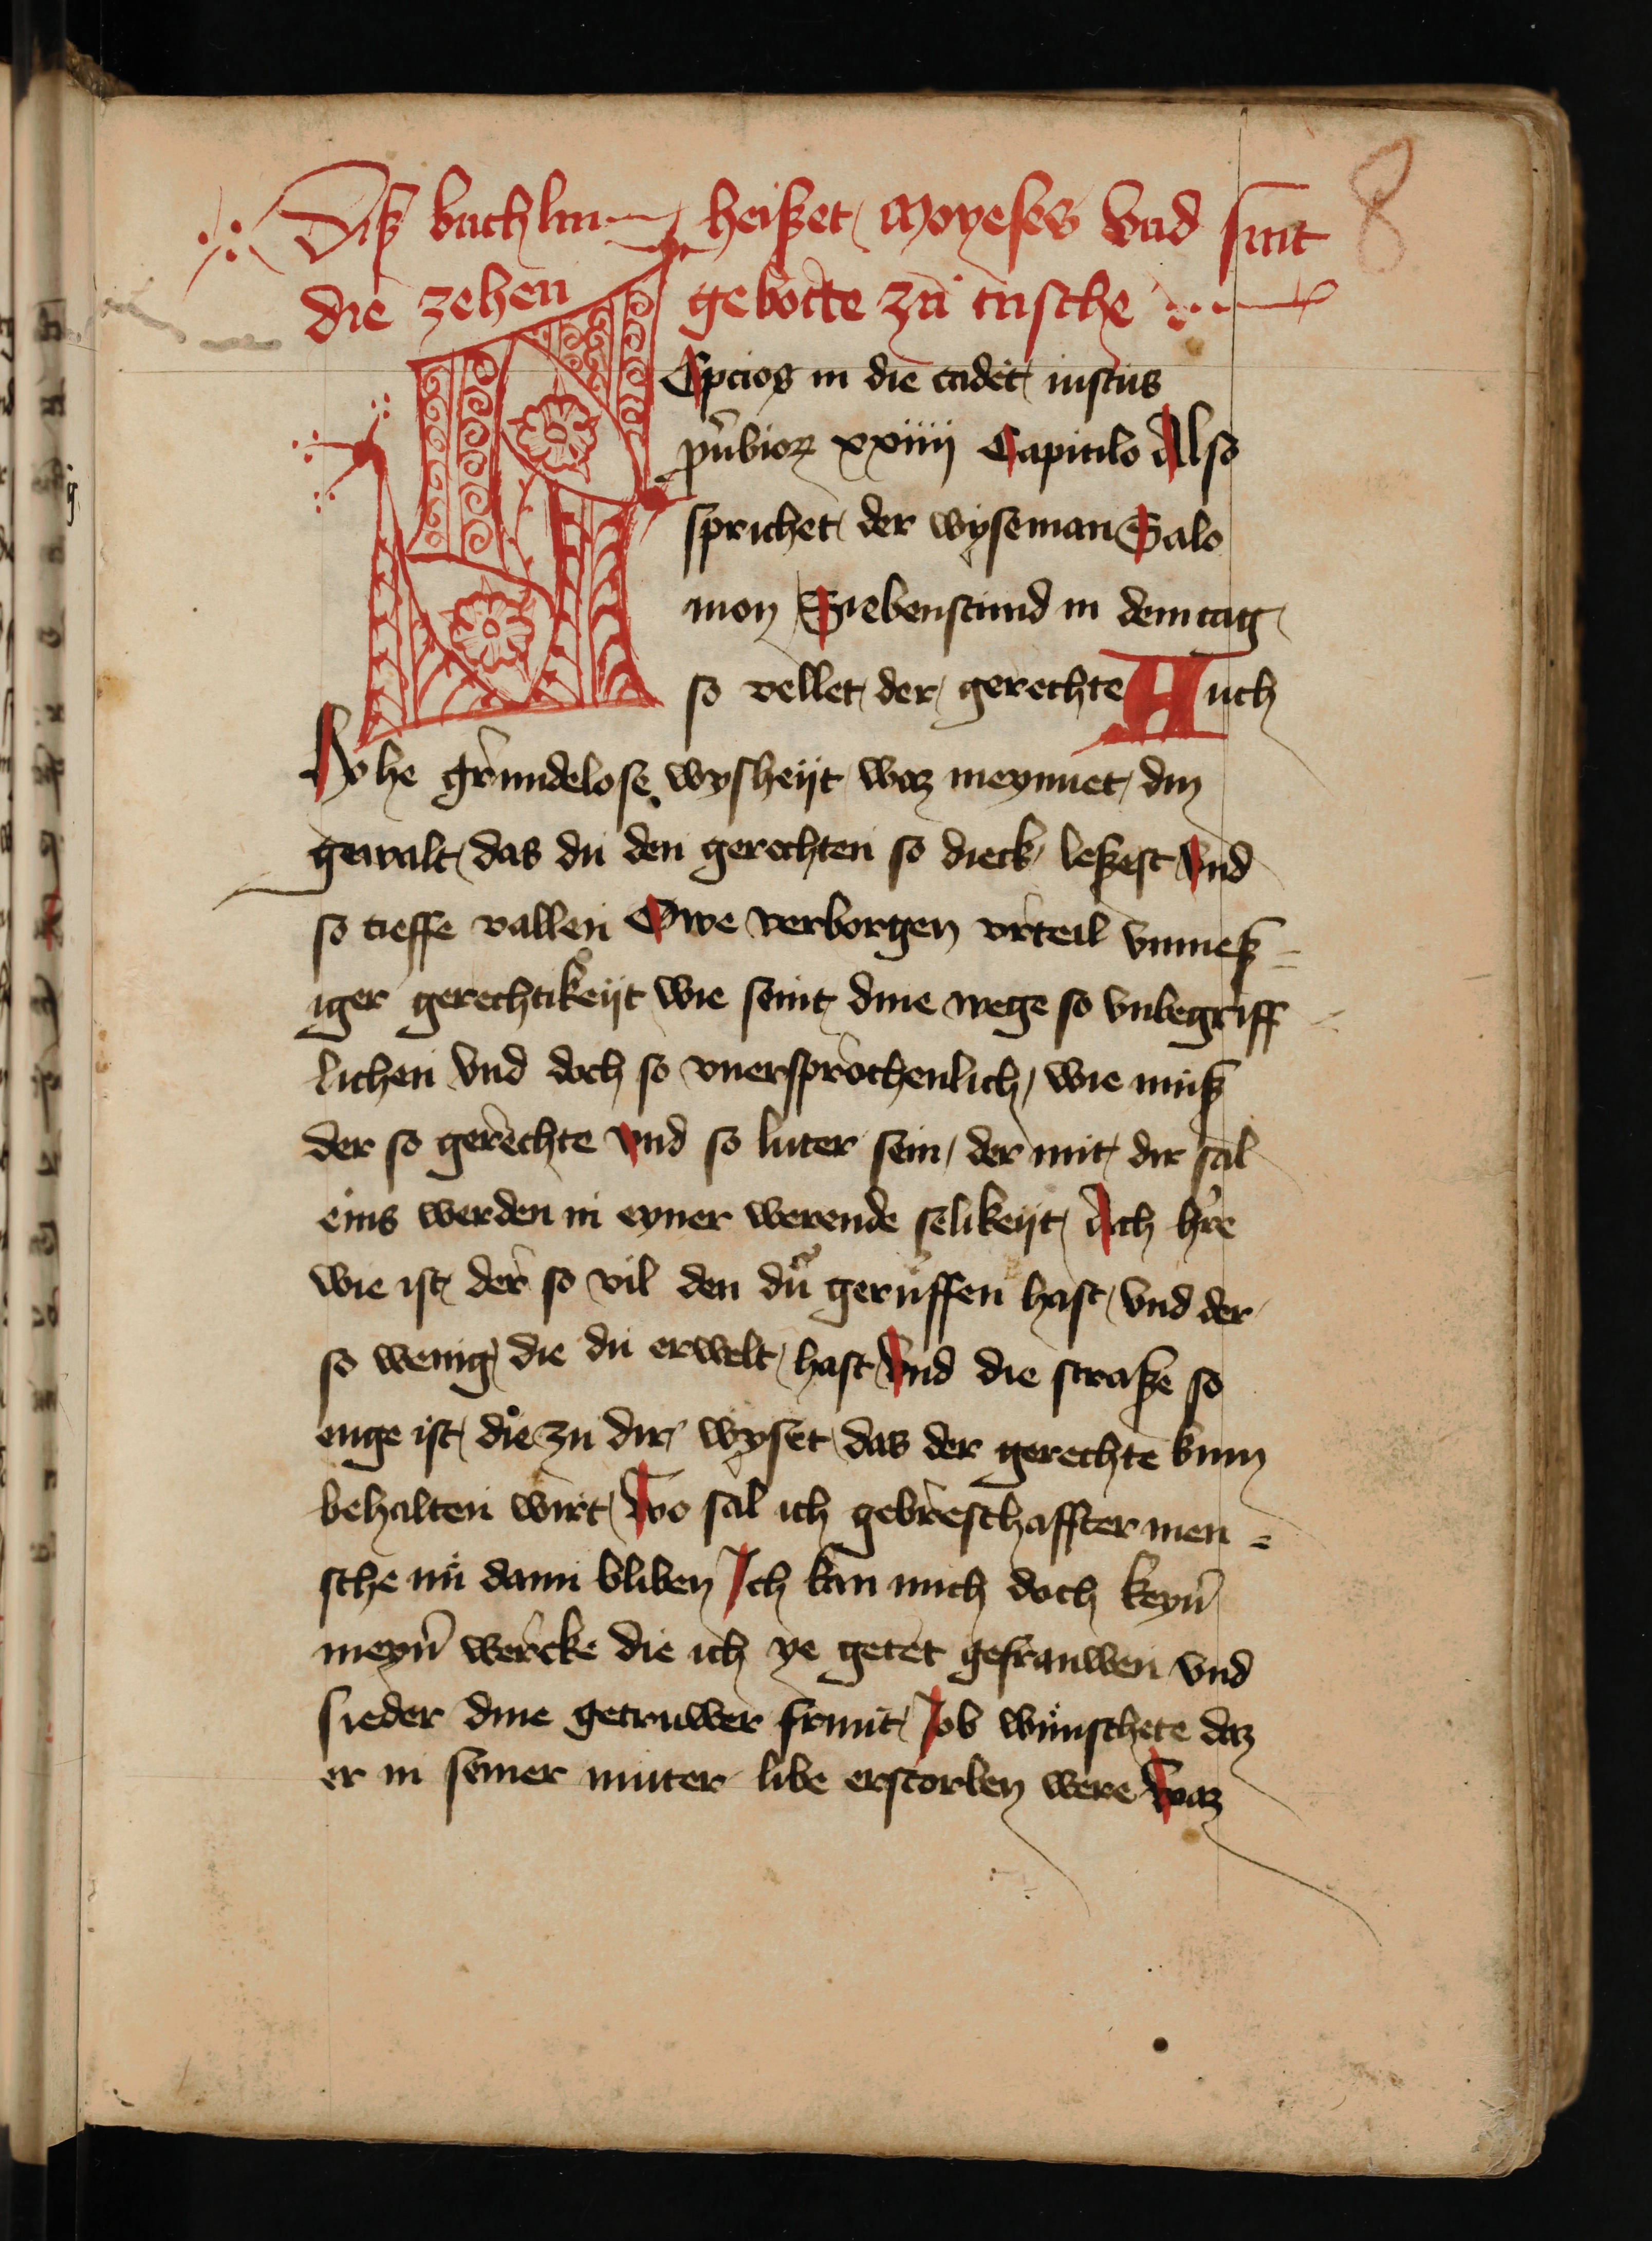 8
Diß buchlin heißet Moyeses vnd sint
die zehen gebotte zu tusche
Epcies in die cadet iustus
prubior xxiiii Capitilo Also
sprichet der wyseman Salo
mon Siebenstund in dem tag
so vellet der gerechte Auch
hohe grundelose wysheijt waz meynnet din
gewalt das du den gerechten so dieck leßest Vnd
so tieffe vallen Owe verborgen vrteil vnmeß=
iger gerechtikeijt wie seint dine wege so vnbegriff=
lichen vnd doch so vnersprochenlich wie muß
der so gerechte vnd so luter sein der mit dir sal
eins werden in eyner werende selikeijt Ach hre
wie ist der so vil den du geruffen hast vnd der
so wenig die du erwelt hast Vnd die straße so
enge ist die zu dir wyset das der gerechte kum
behalten wirt Wo sal ich gebresthaffter men=
sche nu dann bliben Ich kan mich doch keyn
meyn wercke die ich ye getet gefrauwen vnd
sieder dine getruwer frunt Job wunschete daz
er in seiner muter libe erstorben were Waz